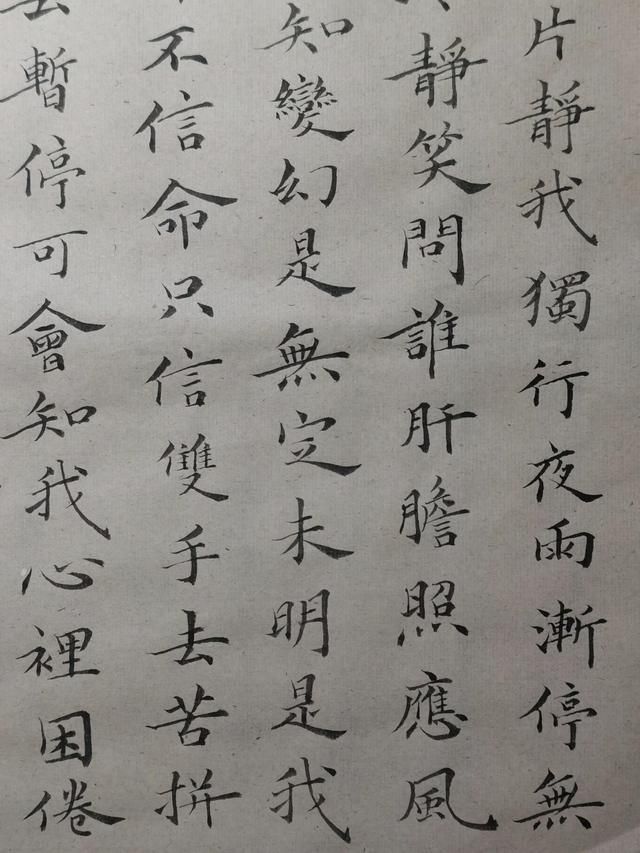 片靜我獨行夜雨漸停無
靜笑問誰肝膽照應風
知變幻是無定未明是我
不信命只信雙手去苦拼
暫停可會知我心裡困倦